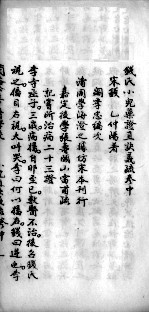 錢氏小兒藥證直訣義疏卷中
宋錢乙仲陽著
閻季忠編次
清周學海澂之據仿宋本刊行
嘉定後學張壽頤山雷甫疏
記嘗所治病二十三證
李寺丞子三歲病搐自卯至巳數醫不治後召錢氏
視之搐目右視大叫哭李曰何以搐右錢曰逆也李